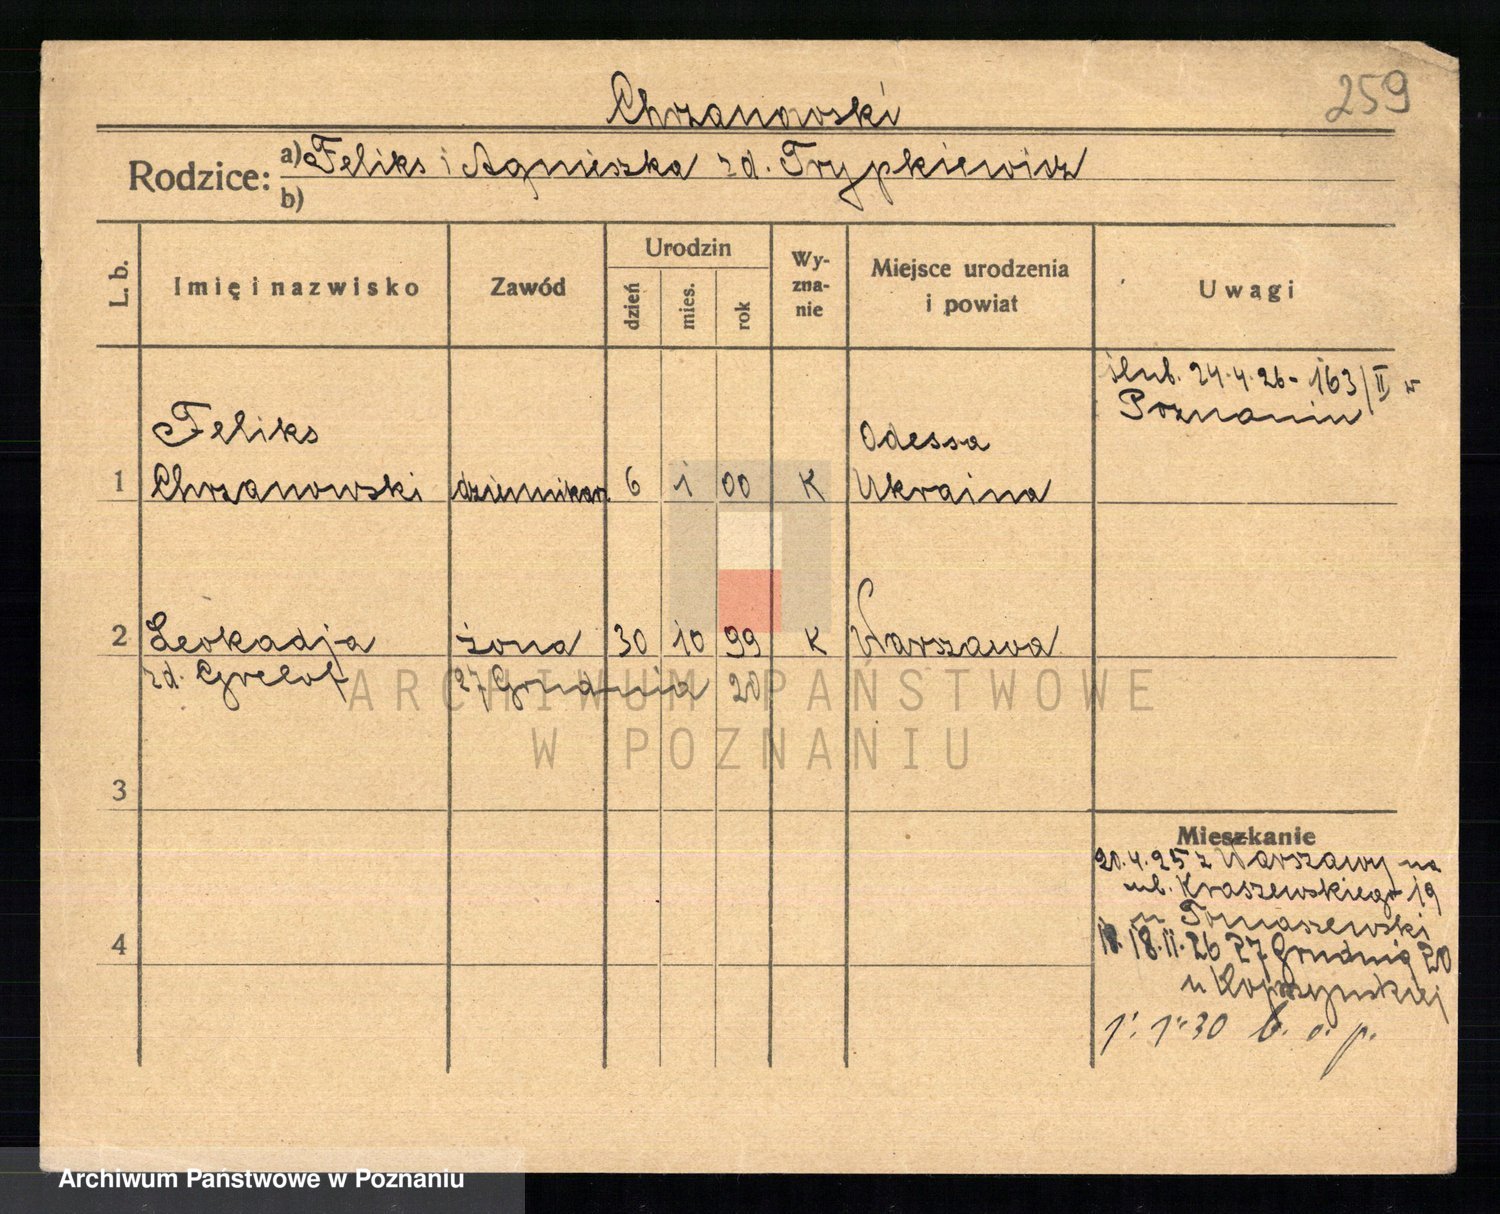 Chrzanowski
259
Rodzice: a) Feliks i Agnieszka zd. Trypkiewicz
b)
L. b.
Imię i nazwisko
Zawód
Urodzin
dzień
mies.
rok
Wy-
zna-
nie
Miejsce urodzenia
i powiat
Uwagi
ślub. 24.4.26 - 163/II w
Poznaniu
Feliks
Odessa
1 Chrzanowski dziennikarz 6 1 00 K Ukraina
2 Leokadja żona 30 10 99 K Warszawa
zd. Grelof 27 Grudnia 20
3
4
Mieszkanie
20.4.25 z Warszawy na
ul. Kraszewskiego 19
u Tomaszewski
18.11.26 27 Grudnia 20
1. 1.30 b. o. p.
ARCHIWUM PAŃSTWOWE
W POZNANIU
Archiwum Państwowe w Poznaniu